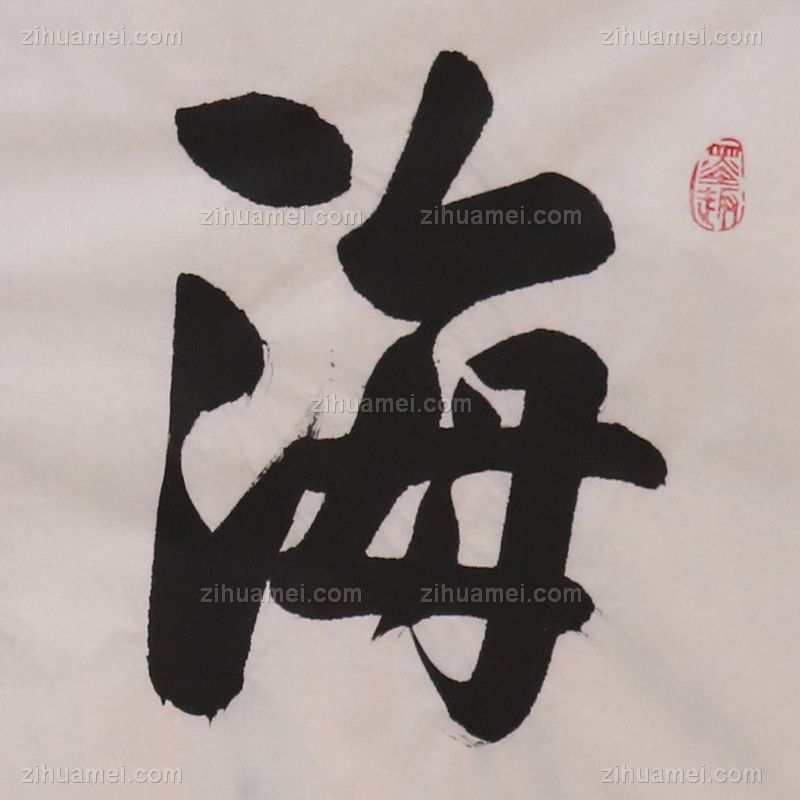 zihuamei.com zihuamei.com
海
zihuamei.com zihuamei.com
zihuamei.com
zihuamei.com zihuamei.com
zihuamei.com zihuamei.com